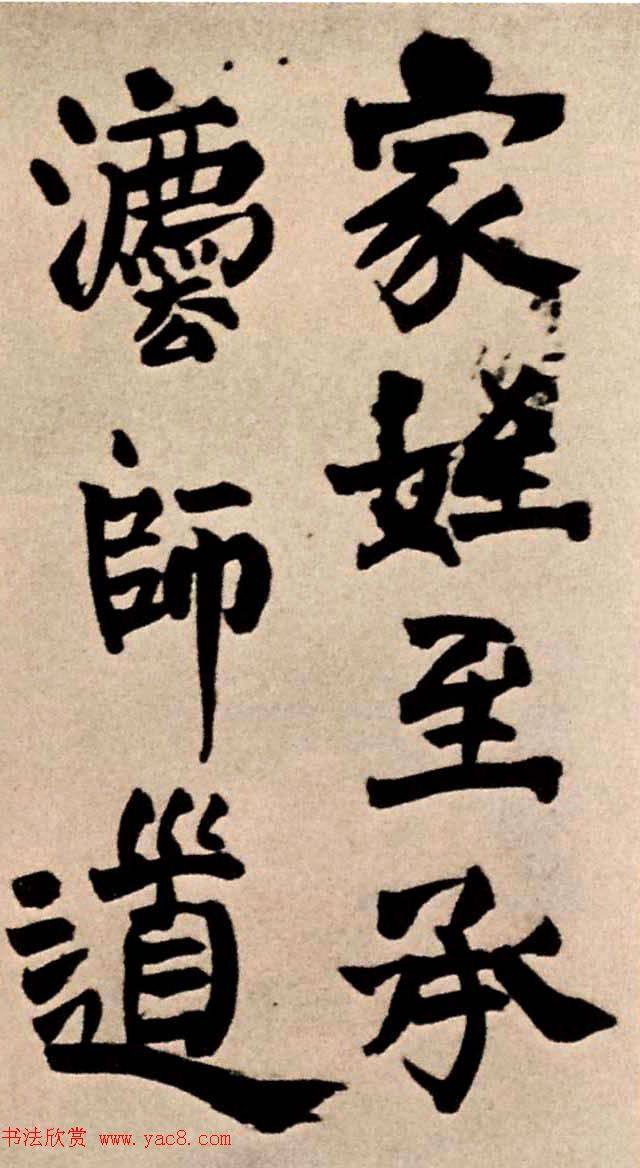 家姪至承
灋師道
书法欣赏 www.yac8.com